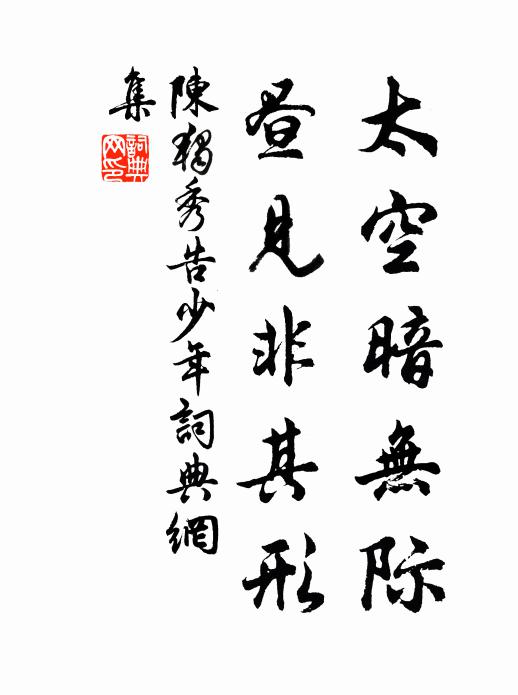 太空暗無际
昼見非其形
陳獨秀告少年詞典網
集
詞典
网印